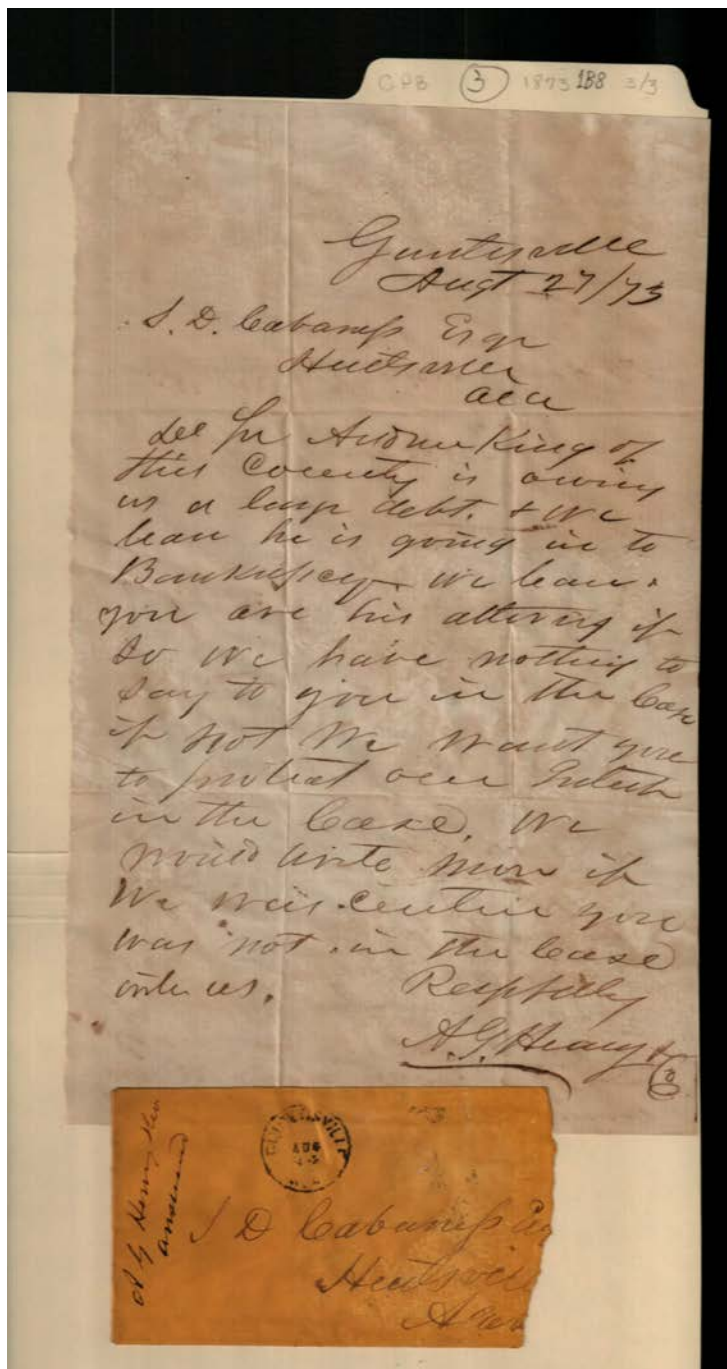 CPB 3 1873 1B8 3/3
Guntersville
Augt 27/73
S. D. Cabaniss Esqr
Huntsville
Ala
Der Sir Andrew King of
this County is owing
us a large debt. & we
lean he is going in to
Bankrupcy. We lean
you are his attorney if
so We have nothing to
say to you in the Case
if not We want you
to protect our Interest
in the Case. We
would write more if
We was certin you
was not in the Case
write us. Respfully
A. G. Henry & Co
GUNTERSVILLE
AUG
A G Henry
answered
S D Cabaniss
Huntsville
Ala